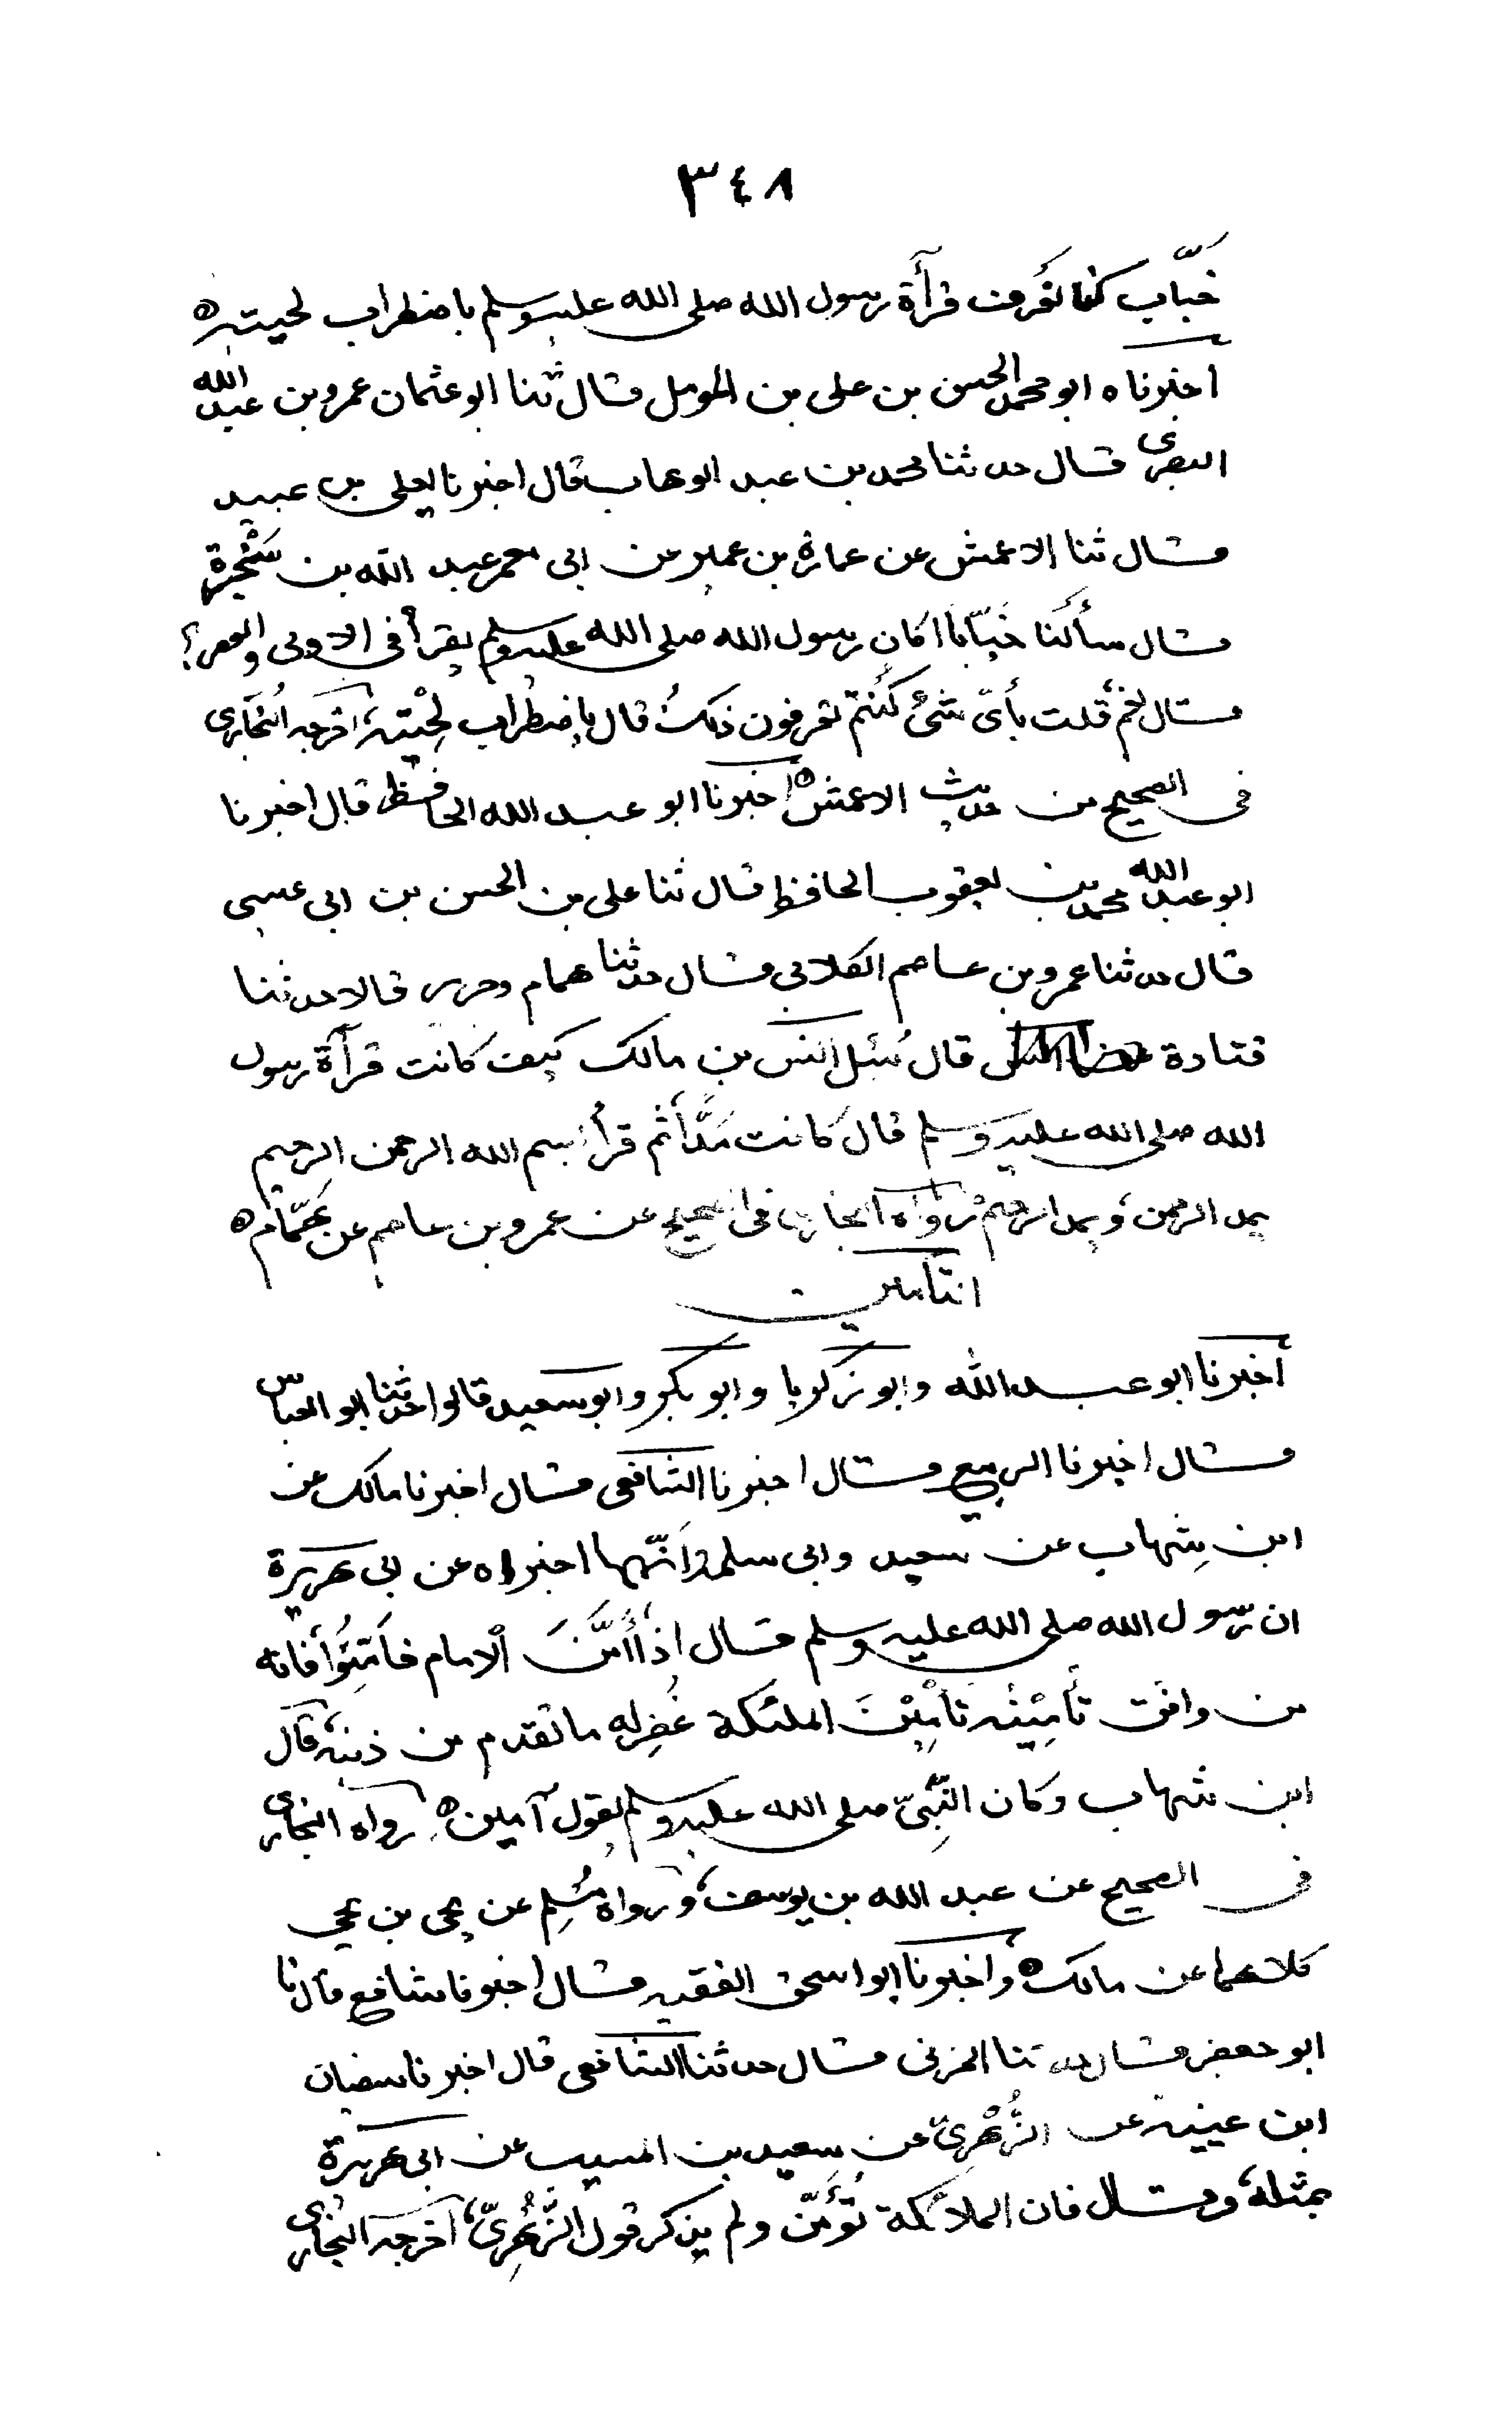 ٣٤٨
خبّاب كنا نعرف قرآءة رسول الله صلى الله عليه وسلم باضطراب لحيته ه
اخبرناه ابو محمد الحسن بن على بن المومل قال ثنا ابو عثمان عمرو بن عبد الله
البصرى قال حدثنا محمد بن عبد الوهاب قال اخبرنا يعلى بن عبيد
قال ثنا الاعمش عن عمارة بن عمير عن ابى معمر عبد الله بن سَخْبَرة
قال سألنا خبّابا اكان رسول الله صلى الله عليه وسلم يقرأ فى الاولى والعصر؟
قال نعم، قلت بأىّ شئ كنتم تعرفون ذلك قال باضطراب لحيته، اخرجه البخارى
فى الصحيح من حديث الاعمش ه اخبرنا ابو عبد الله الحافظ قال اخبرنا
ابو عبد الله محمد بن يعقوب الحافظ قال ثنا على بن الحسن بن ابى عيسى
قال حدثنا عمرو بن عاصم الكلابى قال حدثنا همام وجرير قالا حدثنا
قتادة قال سُئِل انس بن مالك كيف كانت قرآءة رسول
الله صلى الله عليه وسلم قال كانت مَدًّا، ثم قرأ بسم الله الرحمن الرحيم
يمد الرحمن، ويمد الرحيم، رواه البخارى فى الصحيح عن عمرو بن عاصم عن هَمّام ه
التأمين
أخبرنا ابو عبد الله وابو زكريا وابو بكر وابو سعيد قالوا حدثنا ابو العباس
قال اخبرنا الربيع قال اخبرنا الشافعى قال اخبرنا مالك عن
ابن شِهاب عن سعيد وابى سلمة أنّهما اخبراه عن ابى هريرة
ان رسول الله صلى الله عليه وسلم قال اذا أمَّنَ الامام فأَمِّنُوا فانه
من وافق تأمِيْنُه تأمِيْنَ الملئكة غُفِر له ما تقدم من ذنبه، قال
ابن شهاب وكان النّبِىّ صلى الله عليه وسلم يقول آمين ه رواه البخارى
فى الصحيح عن عبد الله بن يوسف، ورواه مُسْلِم عن يحيى بن يحيى
كلاهما عن مالك ه وأخبرنا ابو اسحق الفقيه قال اخبرنا شافع قال انا
ابو جعفر قال حدثنا المزنى قال حدثنا الشافعى قال اخبرنا سفيان
ابن عيينه عن الزُّهْرِىّ عن سعيد بن المسيب عن ابى هريرة
بمثله، وقال فان الملائكة تُؤَمِّن ولم يذكر قول الزُّهْرِىّ، أخرجه البخارى